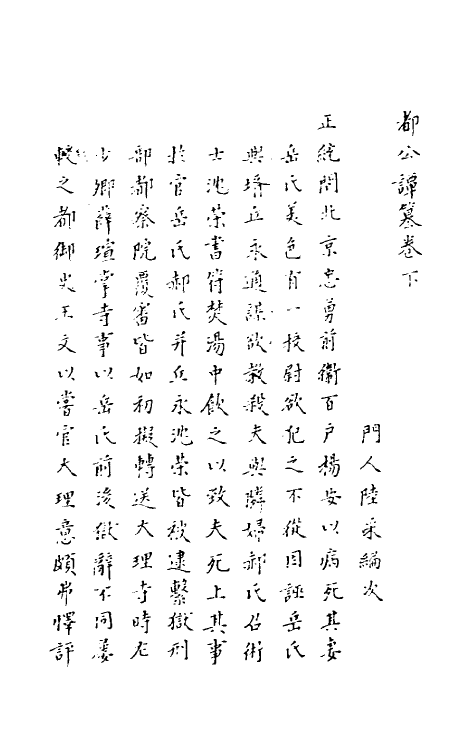 都公譚纂卷下
門人陸采編次
正統間北京忠勇前衛百戶楊安以病死其妻
岳氏美色有一校尉欲犯之不從因誣岳氏
與壻丘永通謀欲殺夫與隣婦郝氏召術
士沈榮書符焚湯中飲之以致夫死上其事
於官岳氏郝氏并丘永沈榮皆被逮繫獄刑
部都察院覆審皆如初擬轉送大理寺時左
少卿薛瑄掌寺事以岳氏前後獄辭不同屢
駁之都御史王文以嘗官大理意頗弗懌評